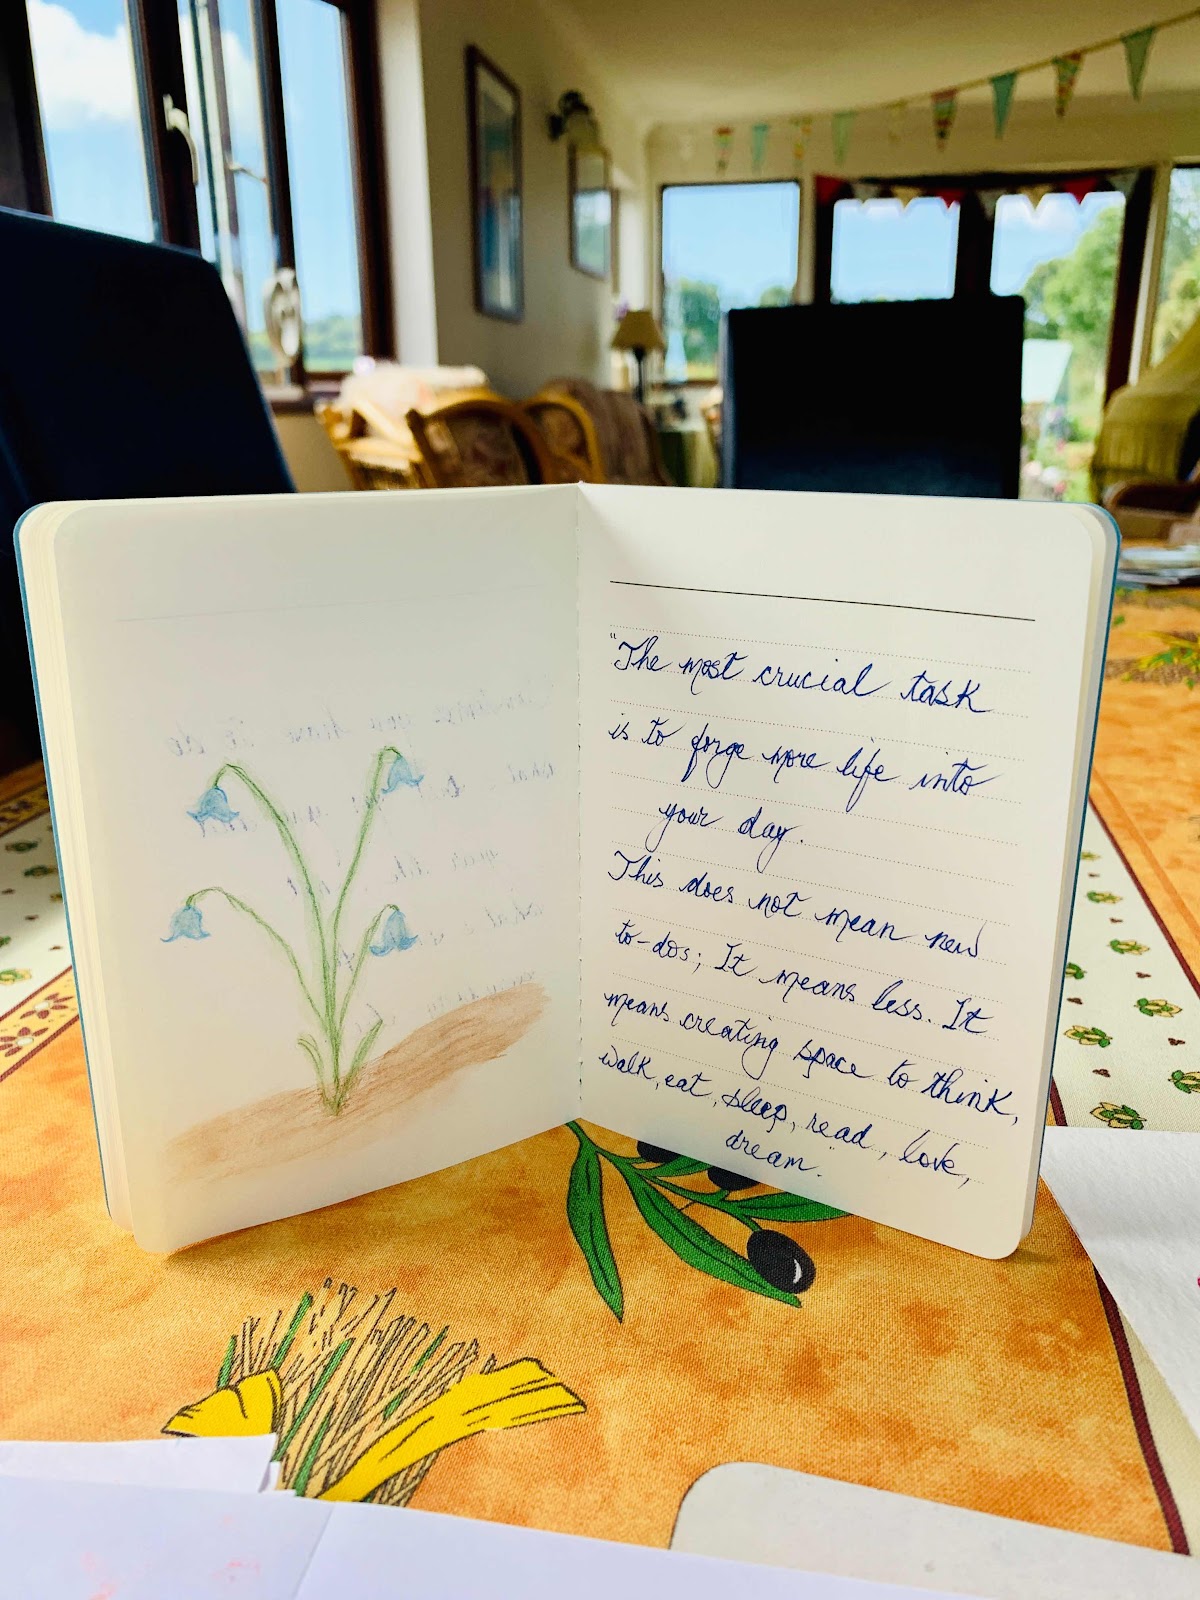 "The most crucial task
is to forge more life into
your day.
This does not mean new
to-dos; It means less. It
means creating space to think,
walk, eat, sleep, read, love,
dream."